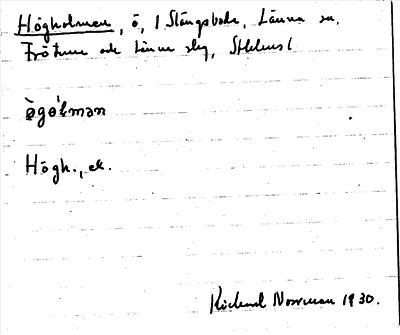 Högholmen, ö, i Stångsboda, Länna sn,
Frötuna och Länna skg, Sthlms l
ö̀gòlman
Högh., ek.
Rickard Norrman 1930.